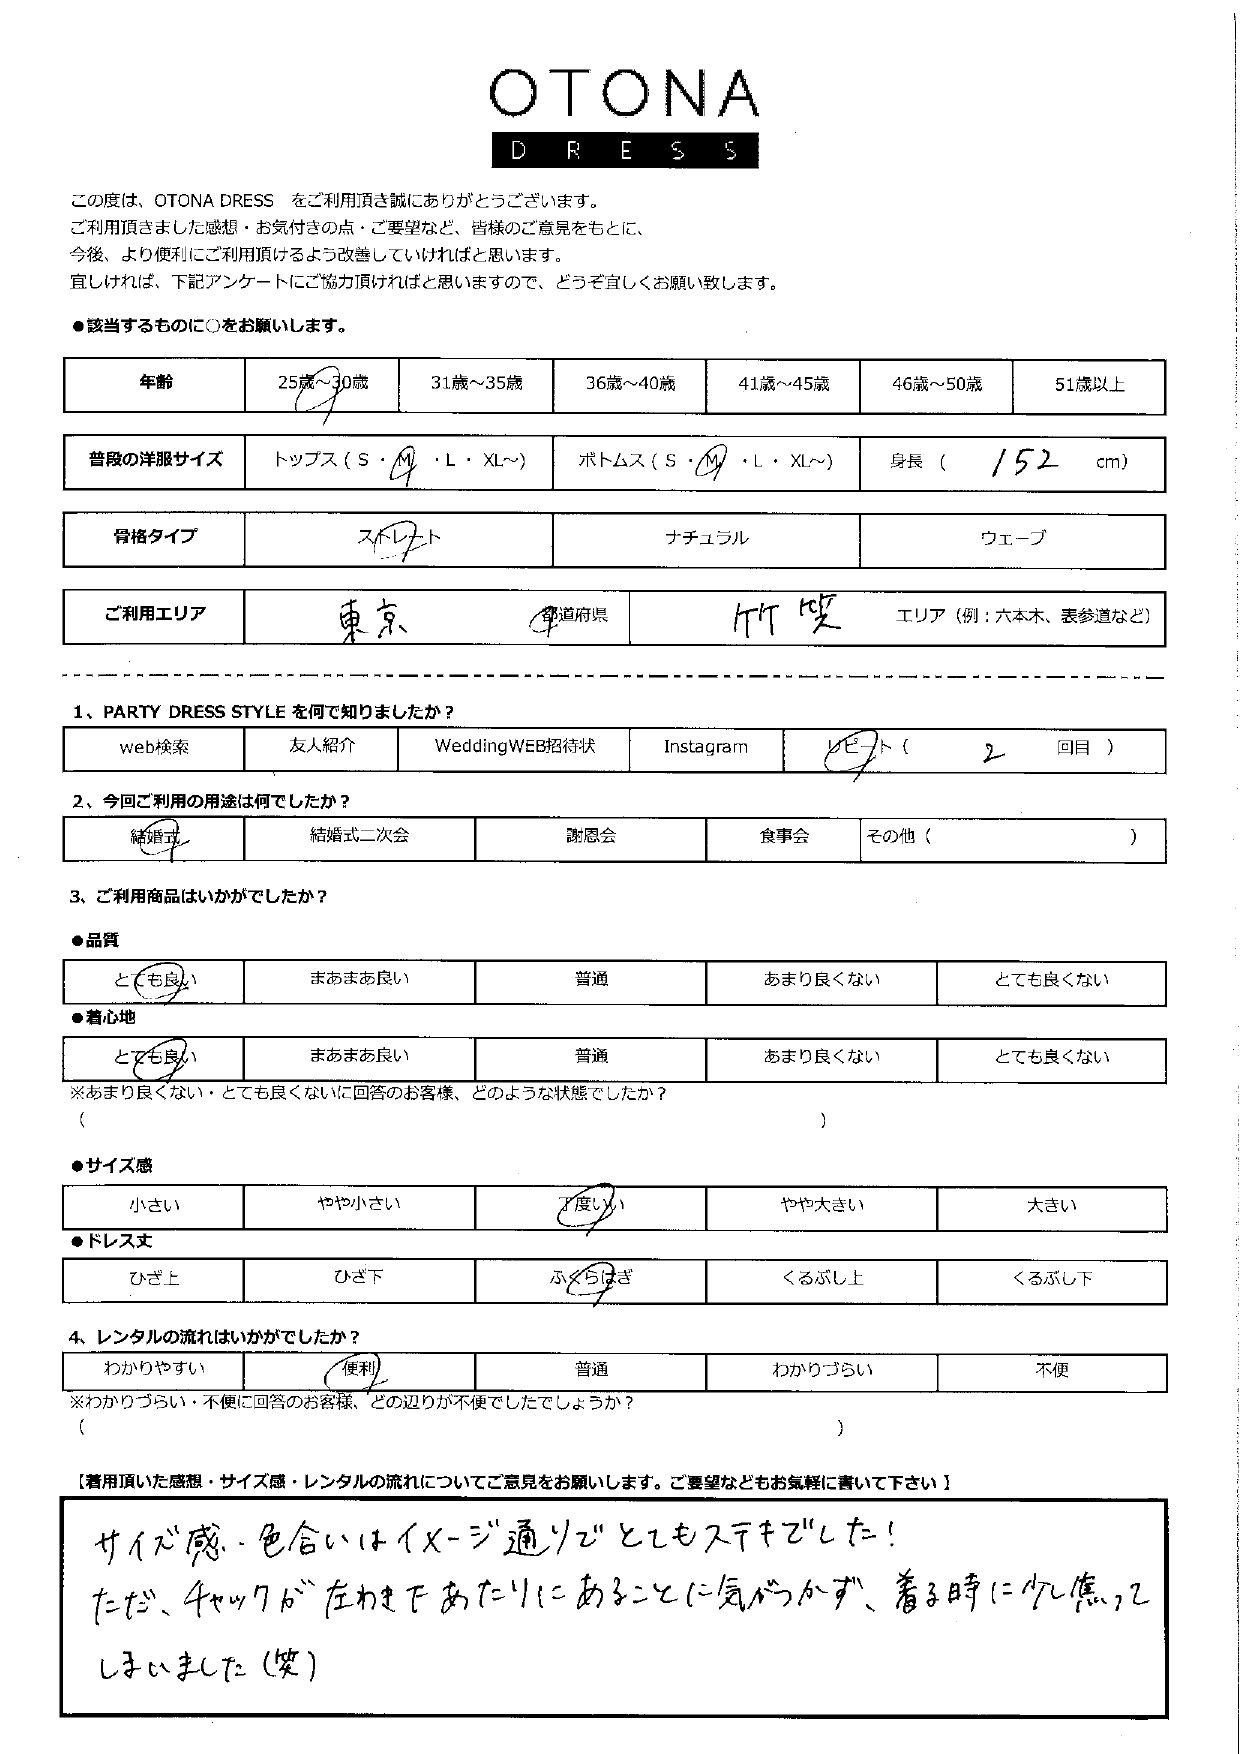 OTONA
DRESS
この度は、OTONA DRESS をご利用頂き誠にありがとうございます。
ご利用頂きました感想・お気付きの点・ご要望など、皆様のご意見をもとに、
今後、より便利にご利用頂けるよう改善していければと思います。
宜しければ、下記アンケートにご協力頂ければと思いますので、どうぞ宜しくお願い致します。
●該当するものに○をお願いします。
年齢 25歳～30歳 31歳～35歳 36歳～40歳 41歳～45歳 46歳～50歳 51歳以上
普段の洋服サイズ トップス ( S ・ M ・ L ・ XL～) ボトムス ( S ・ M ・ L ・ XL～) 身長 ( 152 cm)
骨格タイプ ストレート ナチュラル ウェーブ
ご利用エリア 東京 都道府県 竹 エリア（例：六本木、表参道など）
1、PARTY DRESS STYLE を何で知りましたか？
web検索 友人紹介 WeddingWEB招待状 Instagram リピート ( 2 回目 )
2、今回ご利用の用途は何でしたか？
結婚式 結婚式二次会 謝恩会 食事会 その他 ( )
3、ご利用商品はいかがでしたか？
●品質
とても良い まあまあ良い 普通 あまり良くない とても良くない
●着心地
とても良い まあまあ良い 普通 あまり良くない とても良くない
※あまり良くない・とても良くないに回答のお客様、どのような状態でしたか？
( )
●サイズ感
小さい やや小さい 丁度いい やや大きい 大きい
●ドレス丈
ひざ上 ひざ下 ふくらはぎ くるぶし上 くるぶし下
4、レンタルの流れはいかがでしたか？
わかりやすい 便利 普通 わかりづらい 不便
※わかりづらい・不便に回答のお客様、どの辺りが不便でしたでしょうか？
( )
【着用頂いた感想・サイズ感・レンタルの流れについてご意見をお願いします。ご要望などもお気軽に書いて下さい】
サイズ感・色合いはイメージ通りでとてもステキでした！
ただ、チャックが左わき下あたりにあることに気がつかず、着る時に少し焦って
しまいました(笑)